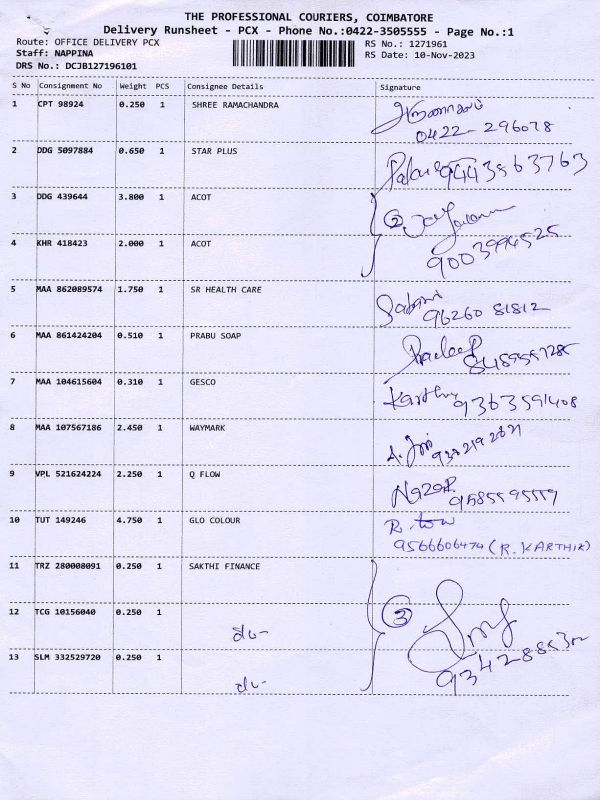 THE PROFESSIONAL COURIERS, COIMBATORE
Delivery Runsheet - PCX - Phone No.:0422-3505555 - Page No.:1
Route: OFFICE DELIVERY PCX RS No.: 1271961
Staff: NAPPINA RS Date: 10-Nov-2023
DRS No.: DCJB127196101
S No Consignment No Weight PCS Consignee Details Signature
1 CPT 98924 0.250 1 SHREE RAMACHANDRA
0422-296078
2 DDG 5097884 0.650 1 STAR PLUS
9443563763
3 DDG 439644 3.800 1 ACOT
2
4 KHR 418423 2.000 1 ACOT
5 MAA 862089574 1.750 1 SR HEALTH CARE
96260 81812
6 MAA 861424204 0.510 1 PRABU SOAP
Pradeep
7 MAA 104615604 0.310 1 GESCO
9363591408
8 MAA 107567186 2.450 1 WAYMARK
9 VPL 521624224 2.250 1 Q FLOW
10 TUT 149246 4.750 1 GLO COLOUR
9566606474 (R. KARTHIK)
11 TRZ 280008091 0.250 1 SAKTHI FINANCE
12 TCG 10156040 0.250 1
3
13 SLM 332529720 0.250 1